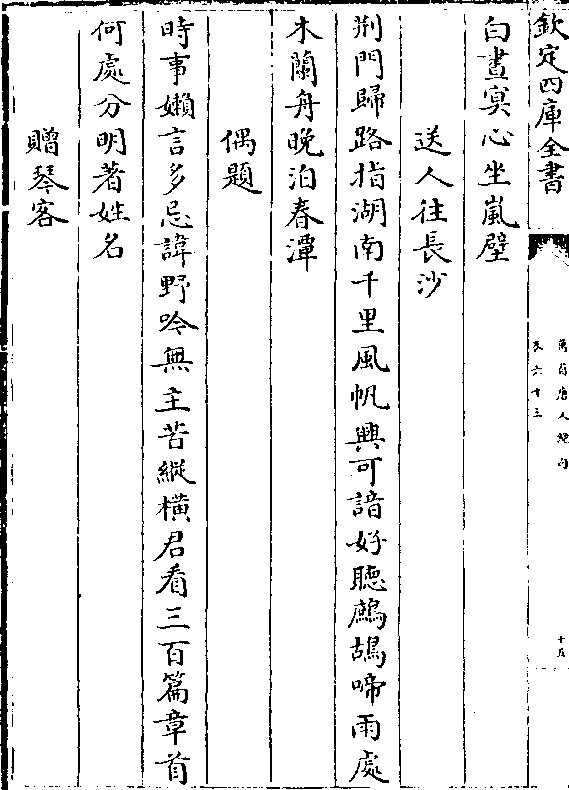 欽定四庫全書
萬首唐人絶句
卷六十三
十五
白晝冥心坐嵐壁
送人往長沙
荆門歸路指湖南千里風帆興可諳好聽鷓鴣啼雨處
木蘭舟晚泊春潭
偶題
時事嬾言多忌諱野吟無主苦縱横君看三百篇章首
何處分明著姓名
贈琴客